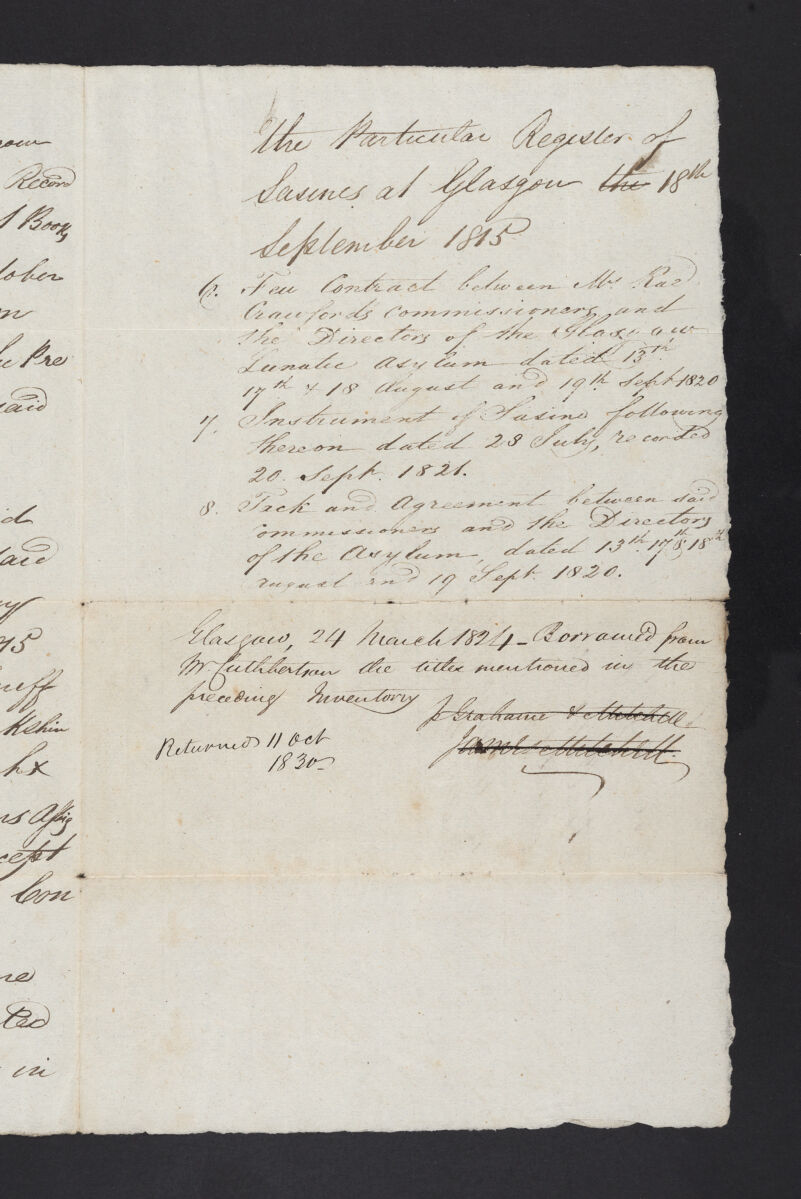 the Particular Register of
Sasines at Glasgow the 18th
September 1815
6. Feu Contract between Mrs Rae
Crawford's commissioners and
the Directors of the Glasgow
Lunatic Asylum dated 13th
17th & 18 August and 19th Sept 1820
7. Instrument of Sasine following
thereon dated 28 July, recorded
20 Sept. 1821.
8. Tack and Agreement between said
commissioners and the Directors
of the Asylum, dated 13th 17th & 18th
August and 19 Sept. 1820.
Glasgow, 24 March 1824 - Borrowed from
Mr Cuthbertson the titles mentioned in the
preceding Inventory
Grahame & Mitchell
James Mitchell
Returned 11 Oct
1830
Record
Books
tober
Pre
said
said
Con
in